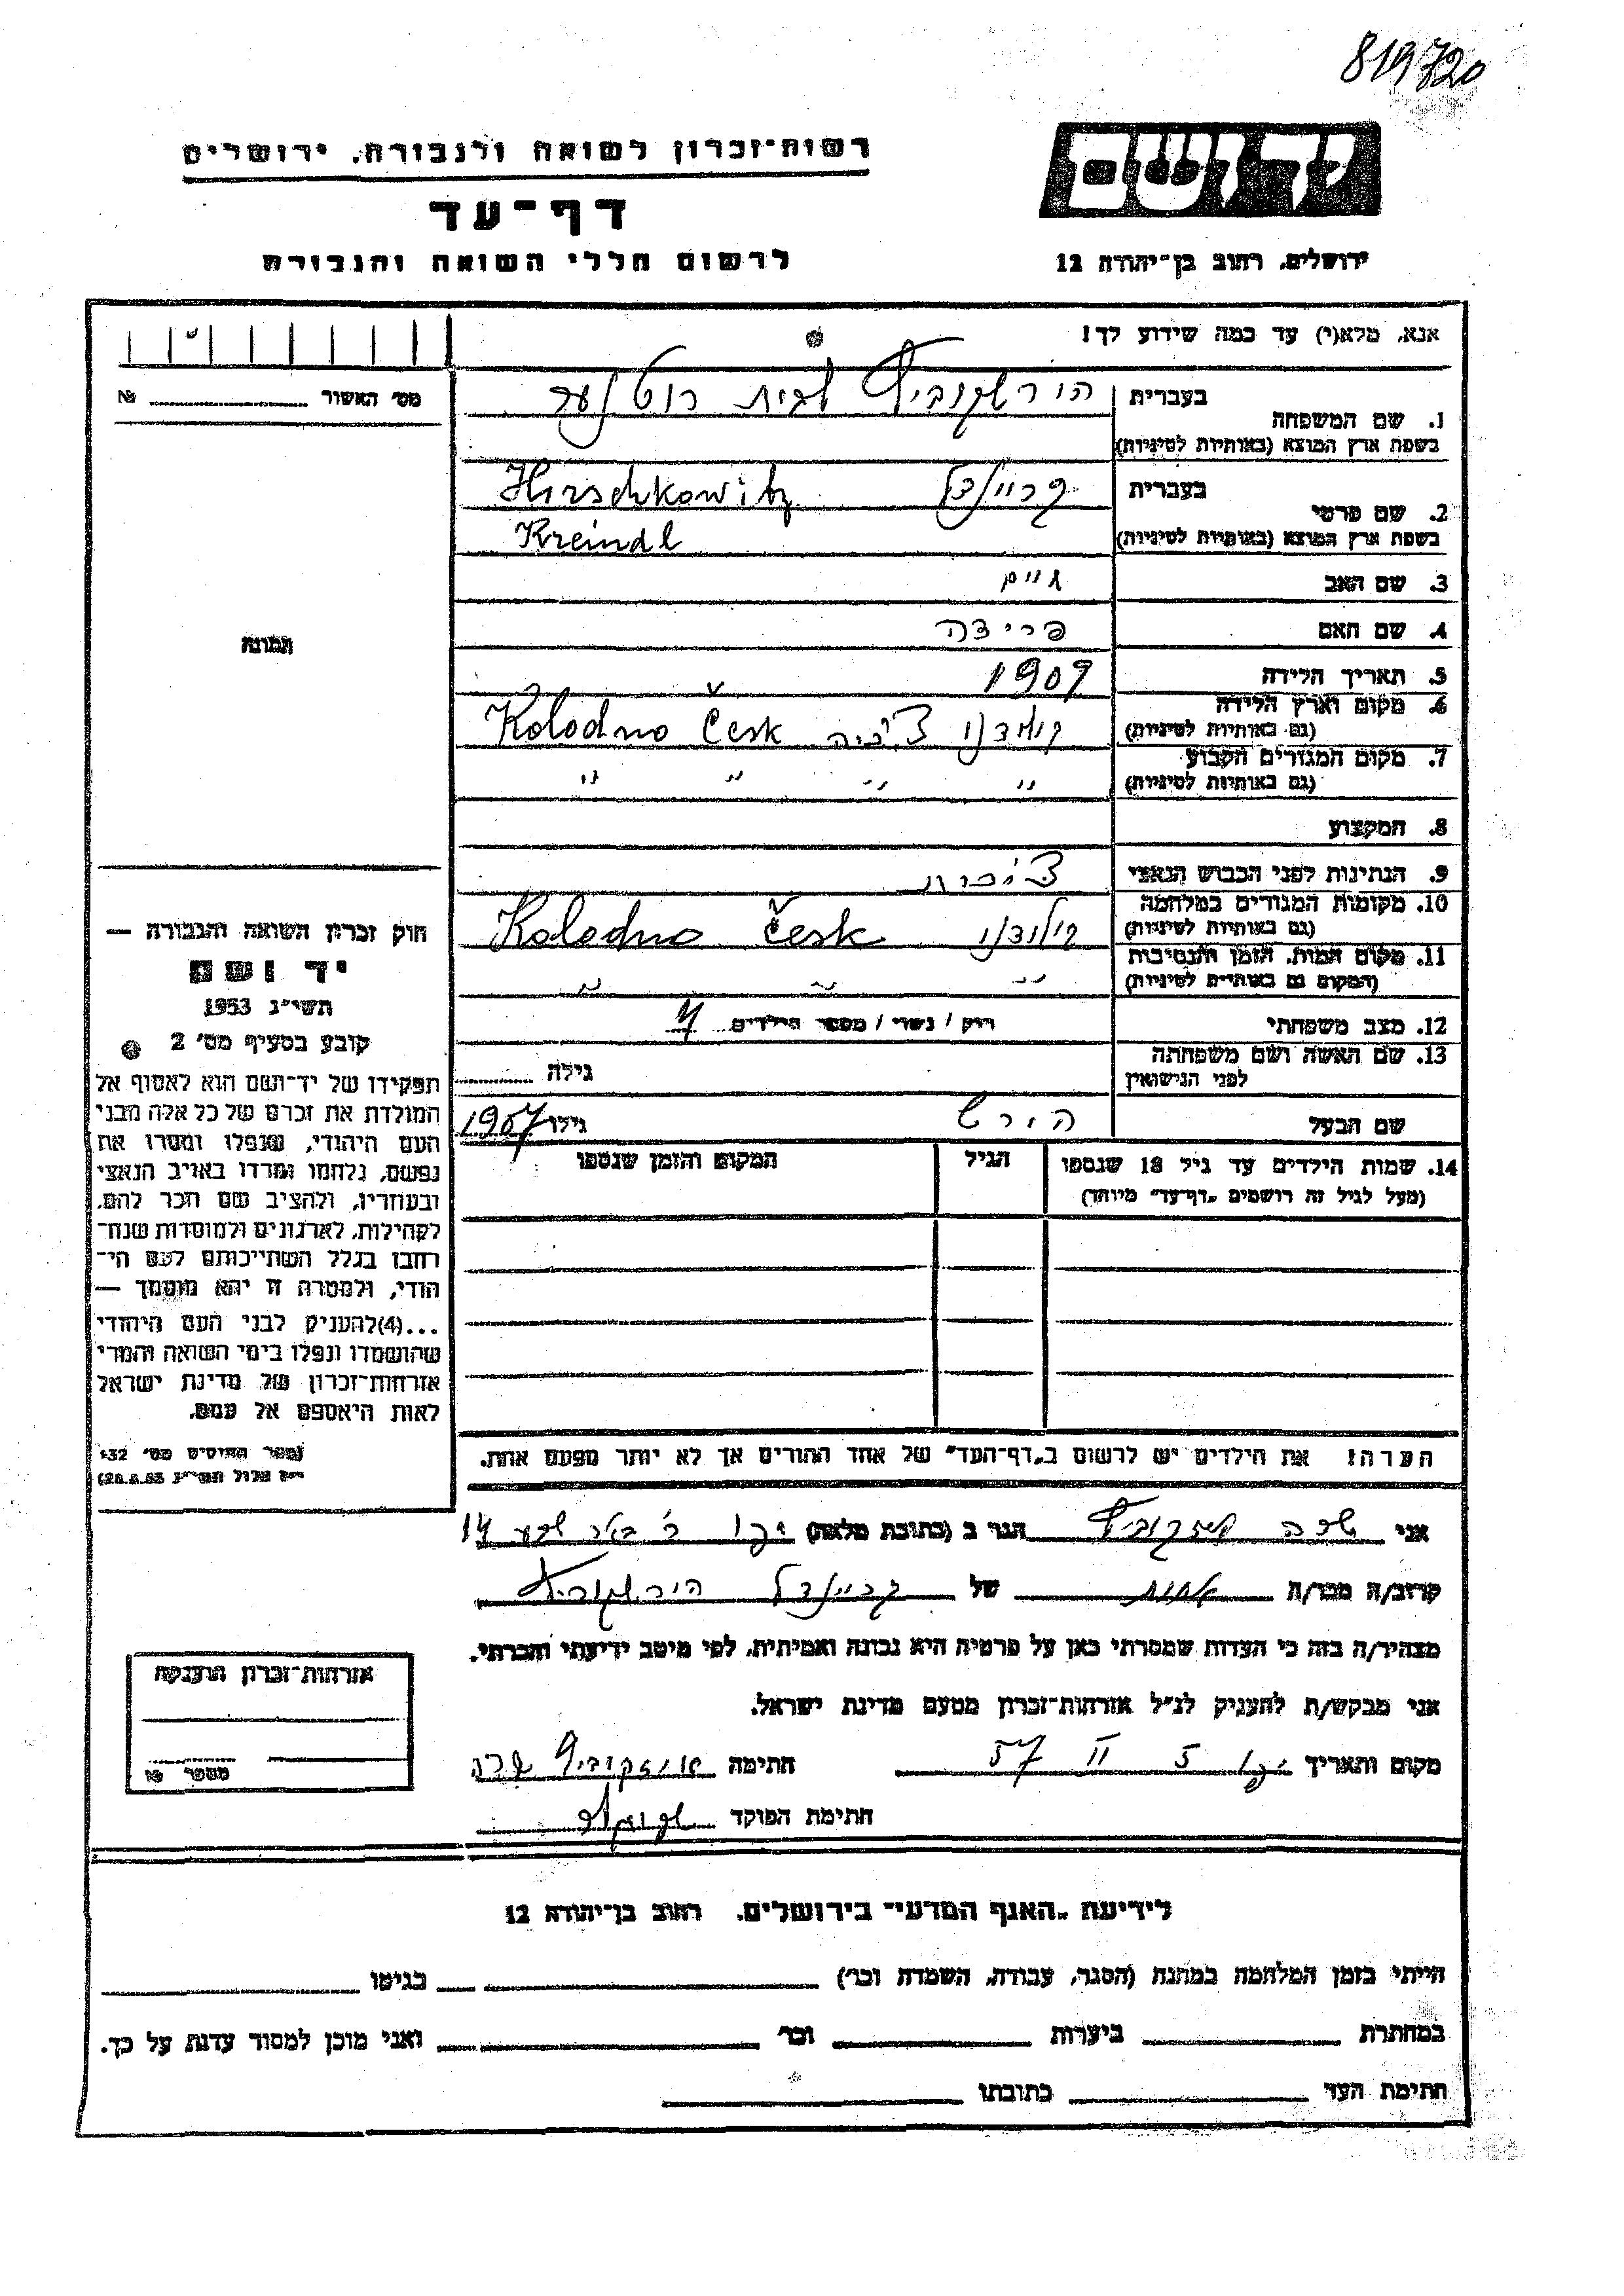 819720
רשות־זכרון לשואה ולגבורה, ירושלים
יד ושם
דף־עד
לרשום חללי השואה והגבורה
ירושלים, רחוב בן־יהודה 12
אנא, מלא(י) עד כמה שידוע לך!
מס׳ האשור № 
1. שם המשפחה בעברית הירשקוביץ לבית
בשפת ארץ המוצא (באותיות לטיניות) Hirschkowitz
2. שם פרטי בעברית קריינדל
בשפת ארץ המוצא (באותיות לטיניות) Kreindl
3. שם האב חיים
4. שם האם פרידה
5. תאריך הלידה 1909
6. מקום וארץ הלידה (גם באותיות לטיניות) קולודנו צ׳כיה Kolodno Česk
7. מקום המגורים הקבוע (גם באותיות לטיניות) " " " "
8. המקצוע
9. הנתינות לפני הכבוש הנאצי
10. מקומות המגורים במלחמה (גם באותיות לטיניות) קולודנו Kolodno Česk
11. מקום המות, הזמן והנסיבות (המקום גם באותיות לטיניות) " " "
12. מצב משפחתי רוק / נשוי / מספר הילדים
13. שם האשה ושם משפחתה לפני הנישואין גילה
שם הבעל הירש גילו 1907
14. שמות הילדים עד גיל 18 שנספו (מעל לגיל זה רושמים „דף־עד״ מיוחד) הגיל המקום והזמן שנספו
הערה! את הילדים יש לרשום ב„דף־העד״ של אחד ההורים אך לא יותר מפעם אחת.
תמונה
חוק זכרון השואה והגבורה —
יד ושם
תשי״ג 1953
קובע בסעיף מס׳ 2
תפקידו של יד־ושם הוא לאסוף אל
המולדת את זכרם של כל אלה מבני
העם היהודי, שנפלו ומסרו את
נפשם, נלחמו ומרדו באויב הנאצי
ובעוזריו, ולהציב שם וזכר להם,
לקהילות, לארגונים ולמוסדות שנח־
רבו בגלל השתייכותם לעם הי־
הודי, ולמטרה זו יהא מוסמך —
...(4) להעניק לבני העם היהודי
שהושמדו ונפלו בימי השואה והמרי
אזרחות־זכרון של מדינת ישראל
לאות היאספם אל עמם.
(ספר החוקים מס׳ 132
י״ז אלול תשי״ג 28.8.53)
אני שרה הגר ב (כתובת מלאה) יפו 14
קרוב/ה מכר/ה אחות של קריינדל הירשקוביץ
מצהיר/ה בזה כי העדות שמסרתי כאן על פרטיה היא נכונה ואמיתית, לפי מיטב ידיעתי והכרתי.
אני מבקש/ת להעניק לנ״ל אזרחות־זכרון מטעם מדינת ישראל.
מקום ותאריך יפו 5 II 57 חתימה שרה
חתימת הפוקד
אזרחות־זכרון הוענקה
מספר №
לידיעת „האגף המדעי״ בירושלים, רחוב בן־יהודה 12
הייתי בזמן המלחמה במחנה (הסגר, עבודה, השמדה וכו׳) בגיטו
במחתרת ביערות וכו׳ ואני מוכן למסור עדות על כך.
חתימת העד כתובתו